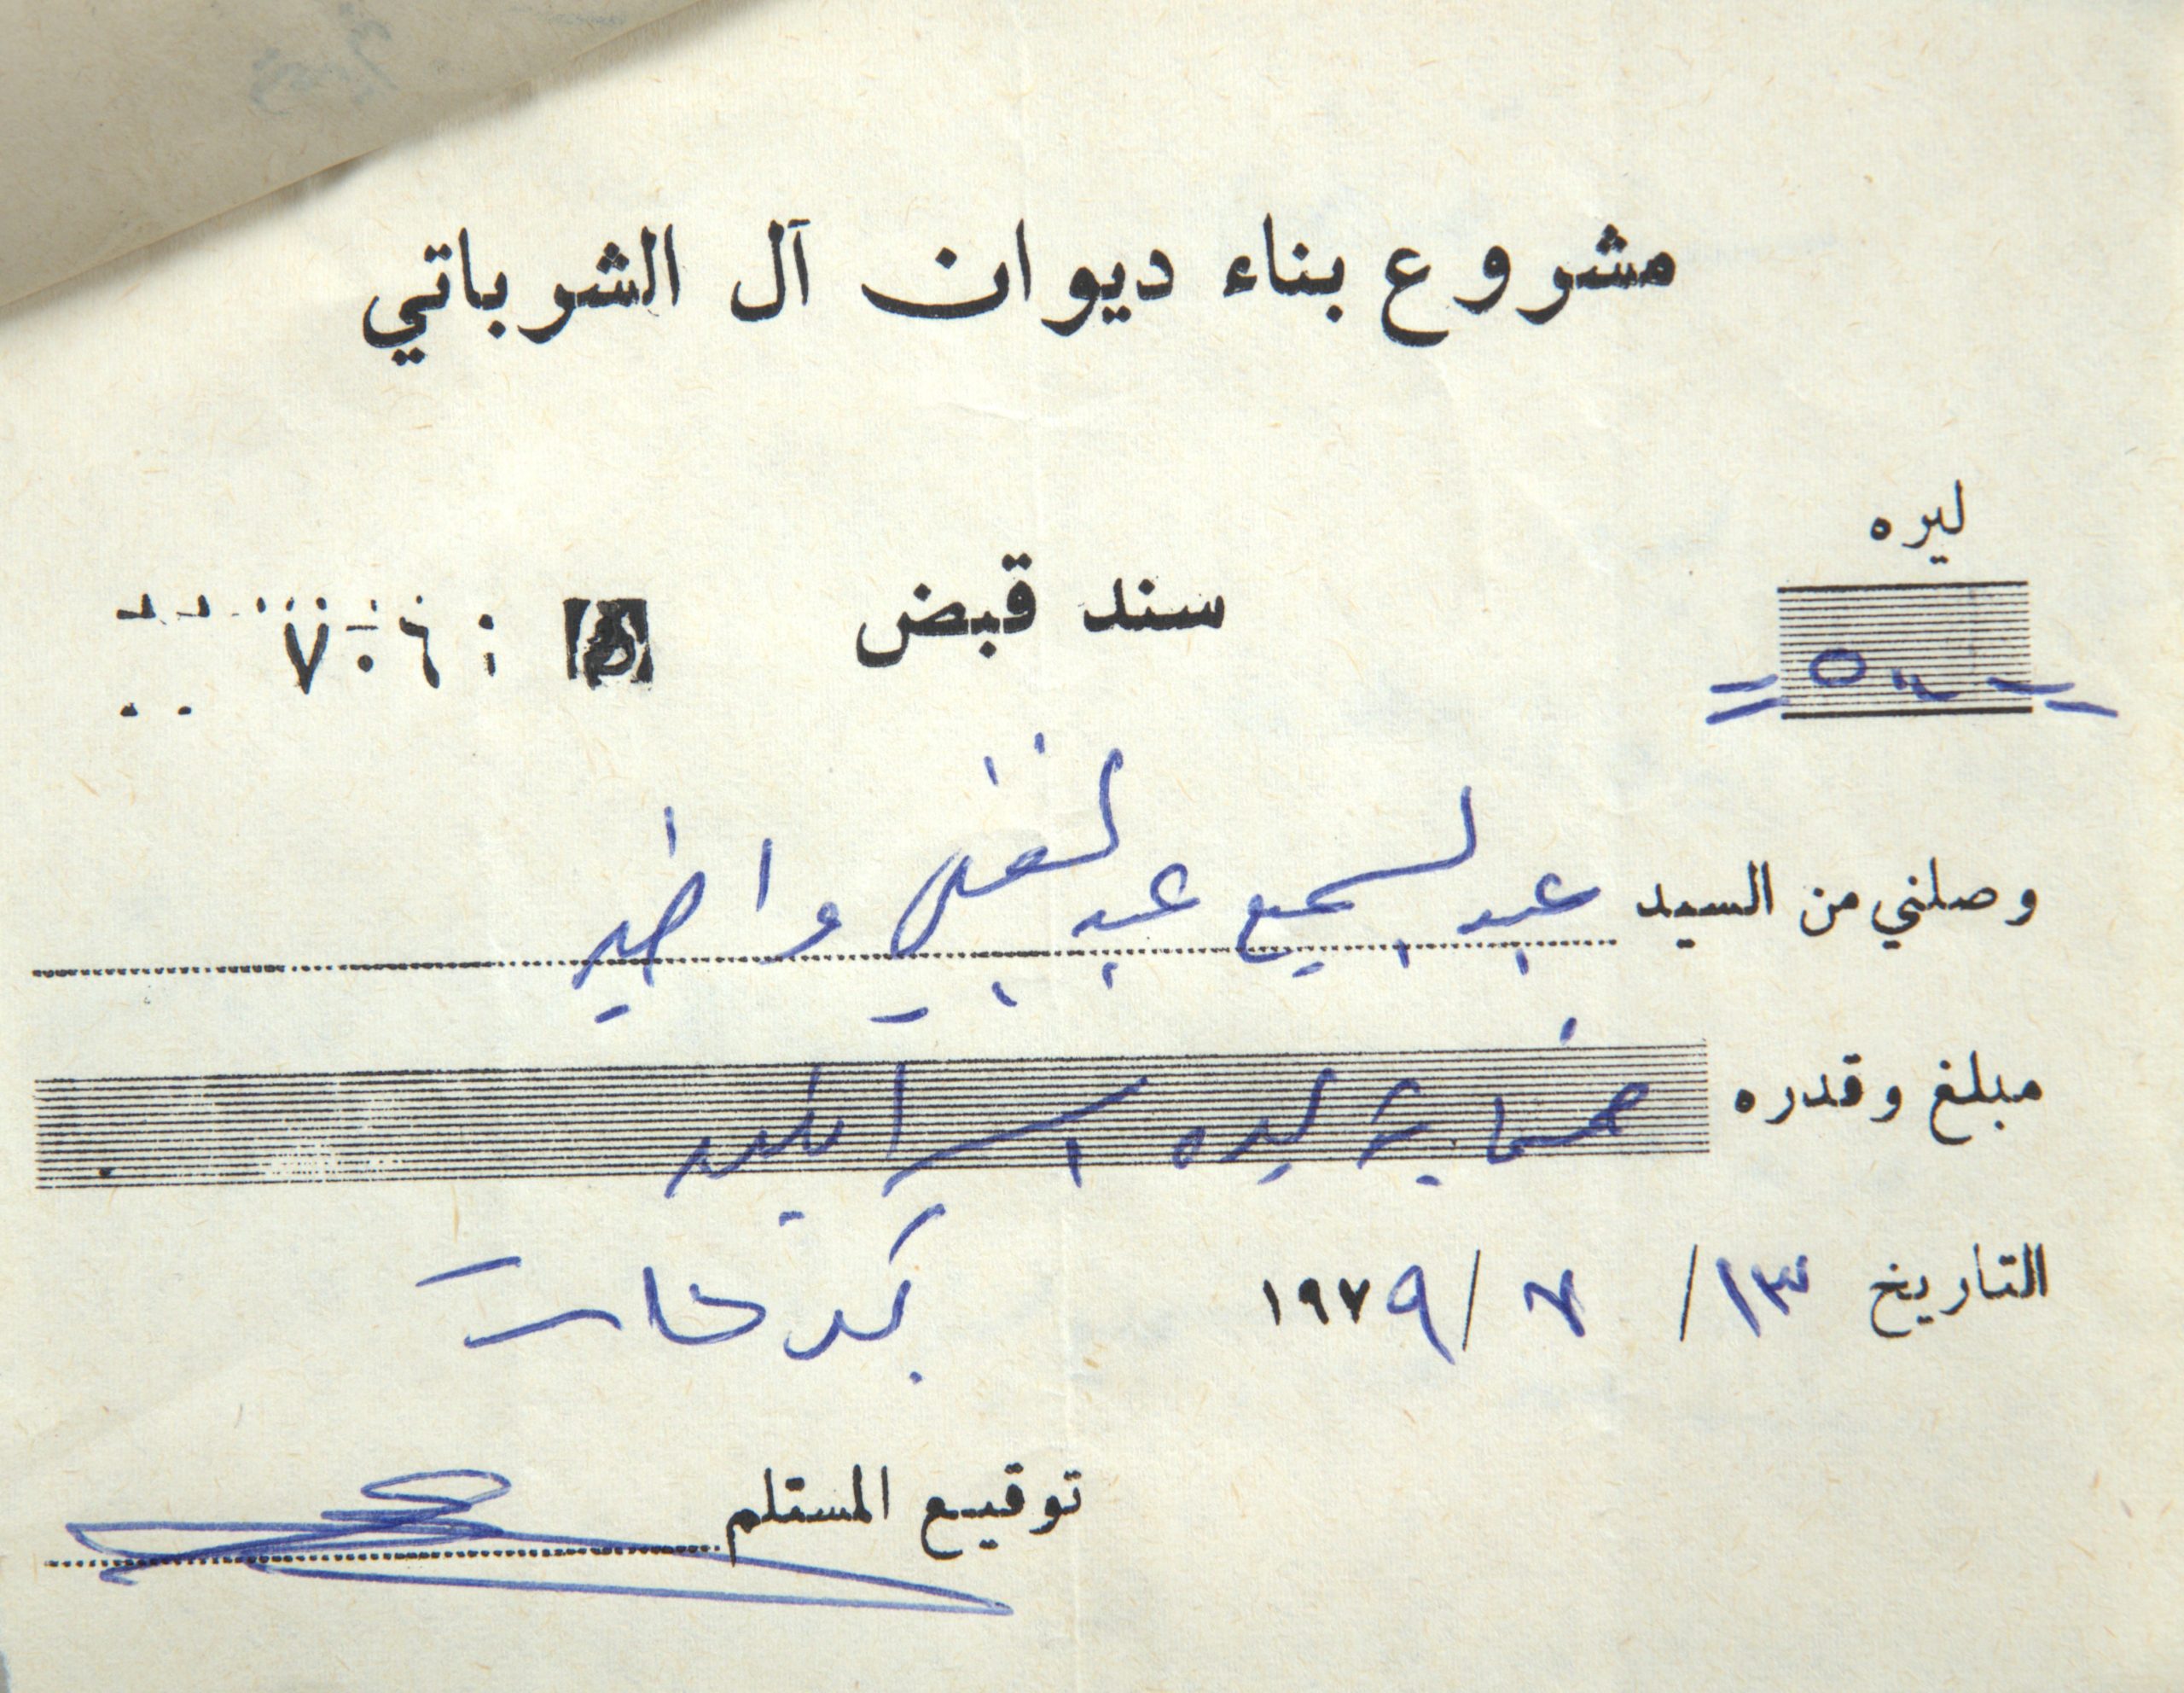 مشروع بناء ديوان آل الشرباتي
ليره
سند قبض
=٥٠٠=
وصلني من السيد عبد السميع عبد الغني واخيه
مبلغ وقدره خمسماية ليره اسرائيليه
التاريخ ١٣ / ٧ / ١٩٧٩
توقيع المستلم